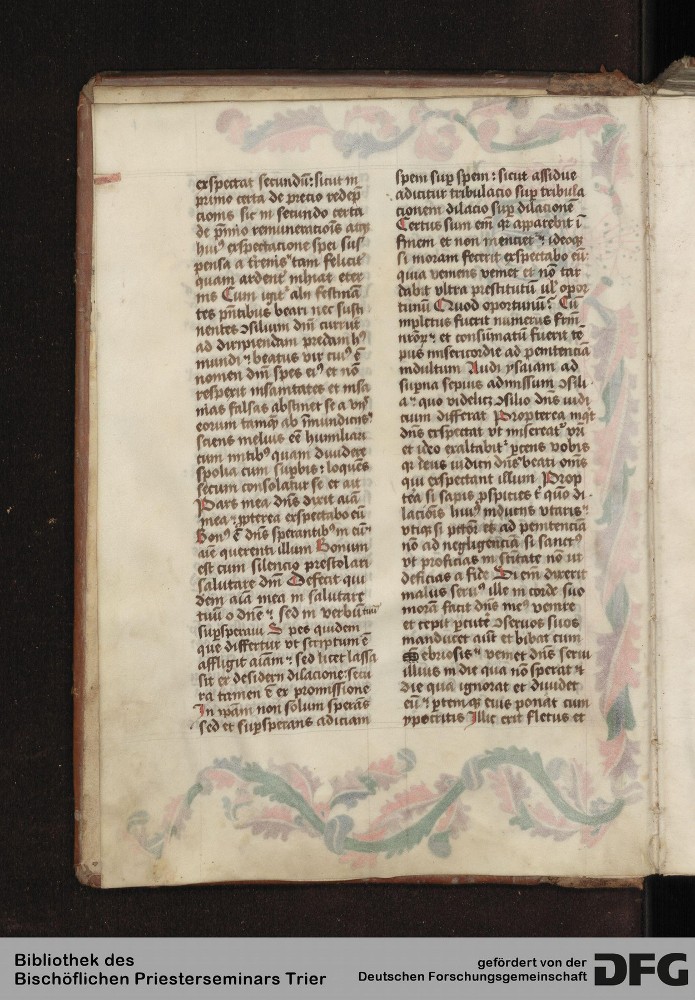 exspectat secundū: sicut in
primo certa de precio redēp
cionis sic in secundo certa
de p̄mio remuneracionis atqꝫ
huiꝰ exspectacione spei sus
pensa a trenis tam felicit͛
quam ardent͛ inhiat eter
nis Cum igit͛ alii festinā
tes p̄ntibus beari nec susti
nentes ꝯsilium dn̄i currūt
ad diripiendam predam hꝰ
mundi ⁊ beatus vir cuiꝰ ē
nomen dn̄i spes eiꝰ et nō
respexit insanitates et insa
nias falsas abstinet se a viis
eorum tamqꝫ ab īmundiciis
sciens melius eē humiliari
cum mitibꝰ quam diuidere
spolia cum suꝑbis: loquēs
secum consolatur se et ait
Pars mea dn̄s dixit aīa
mea ꝓpterea exspectabo eū
Bonꝰ ē dn̄s sperantibꝰ in eū
aīe querenti illum Bonum
est cum silencio prestolari
salutare dn̄i Defecit qui
dem aīa mea in salutare
tuū o dn̄e sed in verbū tuū
suꝑsperaui Spes quidem
que differtur ut scriptum ē
affligit aīam: sed licet lassa
sit ex desiderii dilacione: secu
ra tamen ē ex promissione
In ip̄am non solum sperās
sed et suꝑsperans adiciam
spem suꝑ spem: sicut assidue
adicitur tribulacio suꝑ tribula
cionem dilacio suꝑ dilacionē
Certus sum em̄ qꝛ apparebit ī
finem et non mencietꝛ ideoqꝫ
si moram fecerit exspectabo eū:
quia veniens veniet et nō tar
dabit vltra prestitutū ul̓ opor
tunū Quod oportunū: Cū
impletus fuerit numerus fr̄m
nr̄oꝝ et consumatū fuerit tē
pus misericordie ad penitenciā
indultum Audi ysaiam ad
sup̄na sepius admissum ꝯsili
a quo videlicꝫ ꝯsilio dn̄s iudi
cium differat Propterea inqt
dn̄s exspectat vt misereatꝛ vr̄i
et ideo exaltabitꝛ ꝑcens vobis
qꝛ deus iudicii dn̄s beati om̄s
qui exspectant illum Prop
tea si sapis ꝓspicies t̄ quo di
lacionis huiꝰ induciis vtaris
vtiqꝫ si pctōr es ad penitenciā
nō ad negligenciā si sanctꝰ
vt proficias in sc̄itate nō ut
deficias a fide Si em̄ dixerit
malus seruꝰ ille in corde suo
morā facit dn̄s meꝰ venire
et cepit ꝑcutē ꝯseruos suos
manducet aūt et bibat cum
ebriosis veniet dn̄s serui
illius in die qua nō sperat ⁊
die qua ignorat et diuidet
eū ꝑtemqꝫ eiꝰ ponat cum
ypocritis Illic erit fletus et
Bibliothek des
Bischöflichen Priesterseminars Trier
gefördert von der
Deutschen Forschungsgemeinschaft
DFG